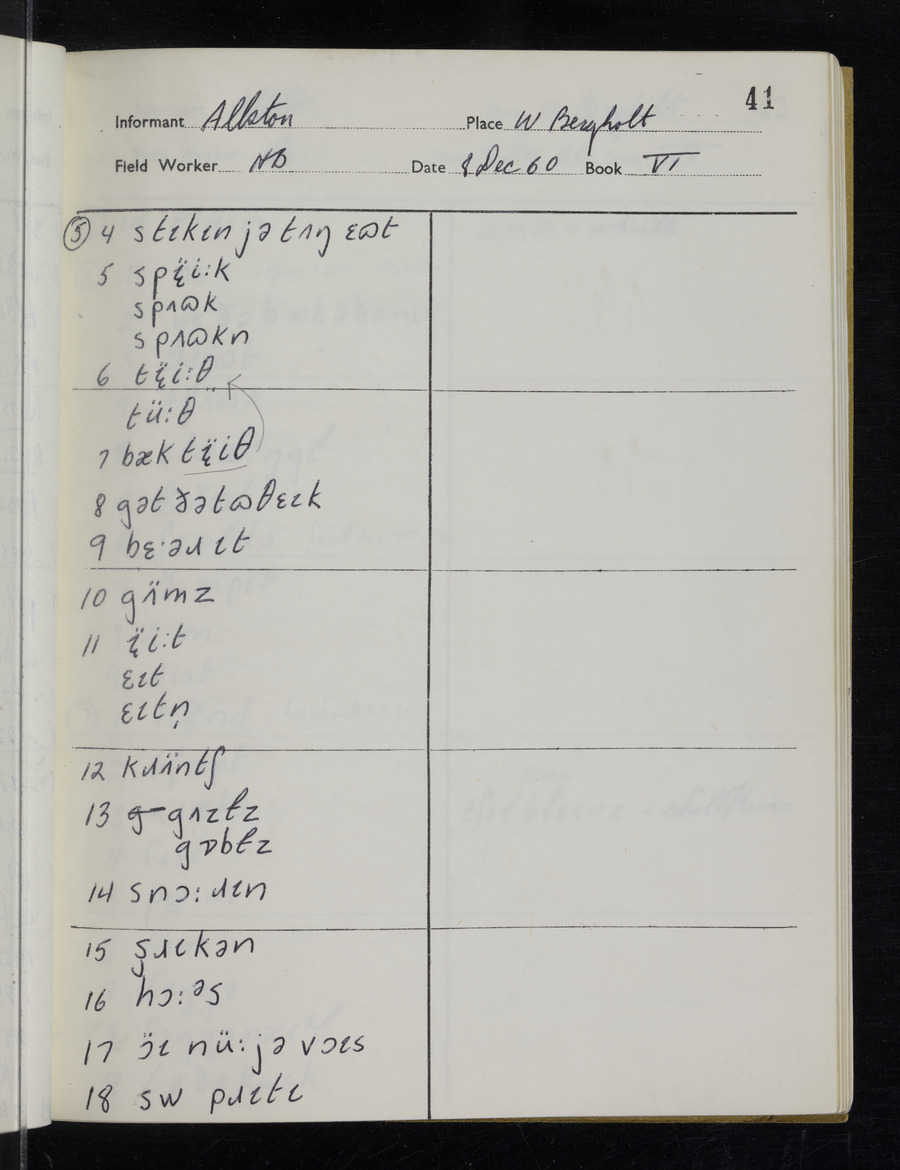 41
Informant Allston Place W Bergholt
Field Worker NB Date 8 Dec 60 Book VI
⑤ 4 stɪkɪn jə tʌŋ ɛɷt
5 spë̞i:k
spʌɷk
spʌɷkn
6 të̞i:θ
tü:θ
7 bæk të̞iθ
8 gət ðətɷθɛɪk
9 bɛ·əɹɪt
10 gʌ̈mz
11 ë̞i:t
ɛɪt
ɛɪtn̩
12 kɹʌ̈ntʃ
13 gʌzɫz
gɒbɫz
14 snɔ:ɹɪn
15 ʂɹɪkən
16 hɔ:ᵊs
17 ɔ̈ɪ nü:jə vɔɪs
18 sw pɹɪtɪ